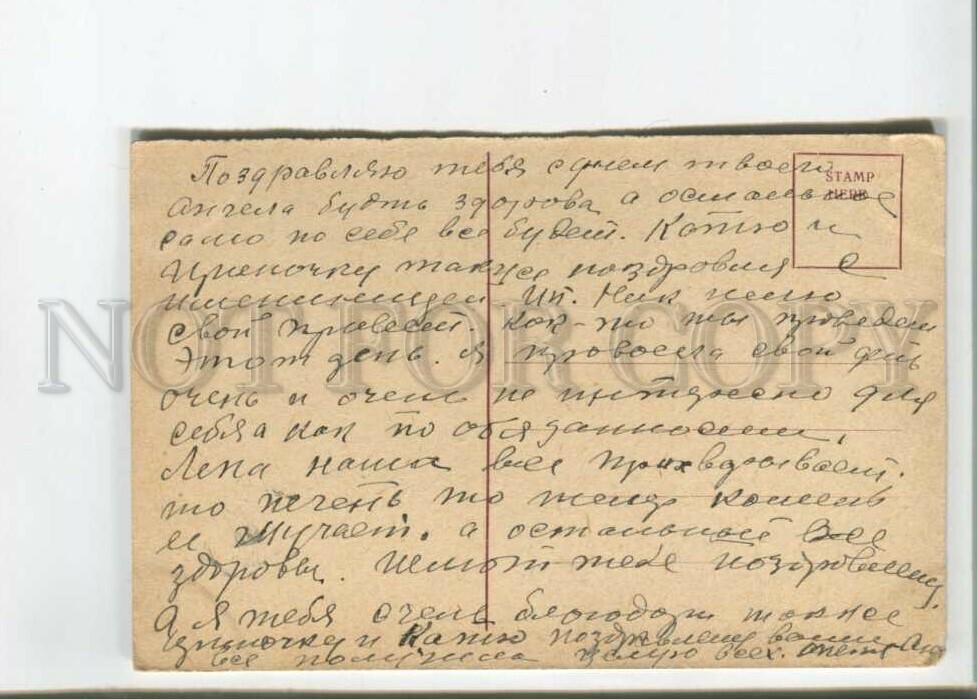 Поздравляю тебя с днем твоего
STAMP
HERE
Ангела будть здорова а остальное
само по себе все будет. Катю и
Ириночку также поздровля с
имениницей. Ип. Ник шлю
свой привет. Как-то ты проведеш
этот день. я провоела свой день
очень и очень не интересно для
себя а как по обязанности,
Лена наша все прихварывает.
то печень то желуд камень
ее мучает. а остальные все
здоровы. Шлют тебе поздровлен
а я тебя очень благодарю также
Ириночку и Катю поздравления ваши
все получила целую всех.
NOT FOR COPY